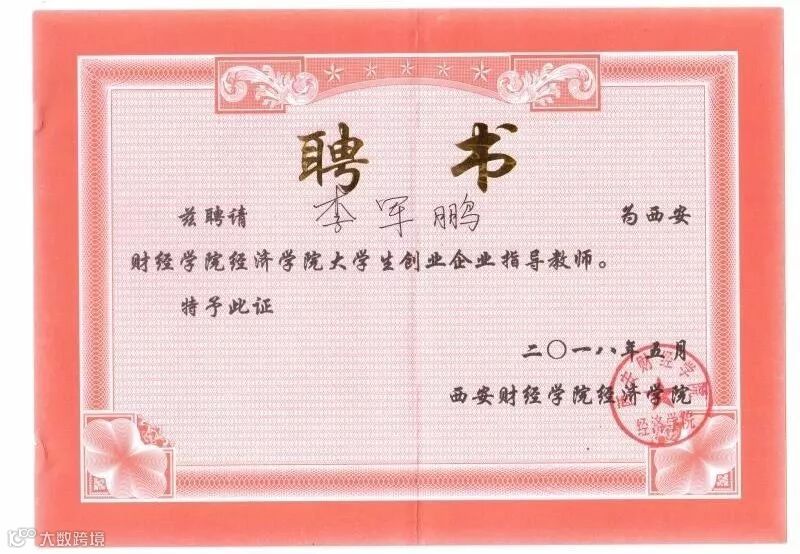 聘书
兹聘请 李军鹏 为西安
财经学院经济学院大学生创业企业指导教师。
特予此证
二〇一八年五月
西安财经学院经济学院
西安财经学院
经济学院
大数跨境